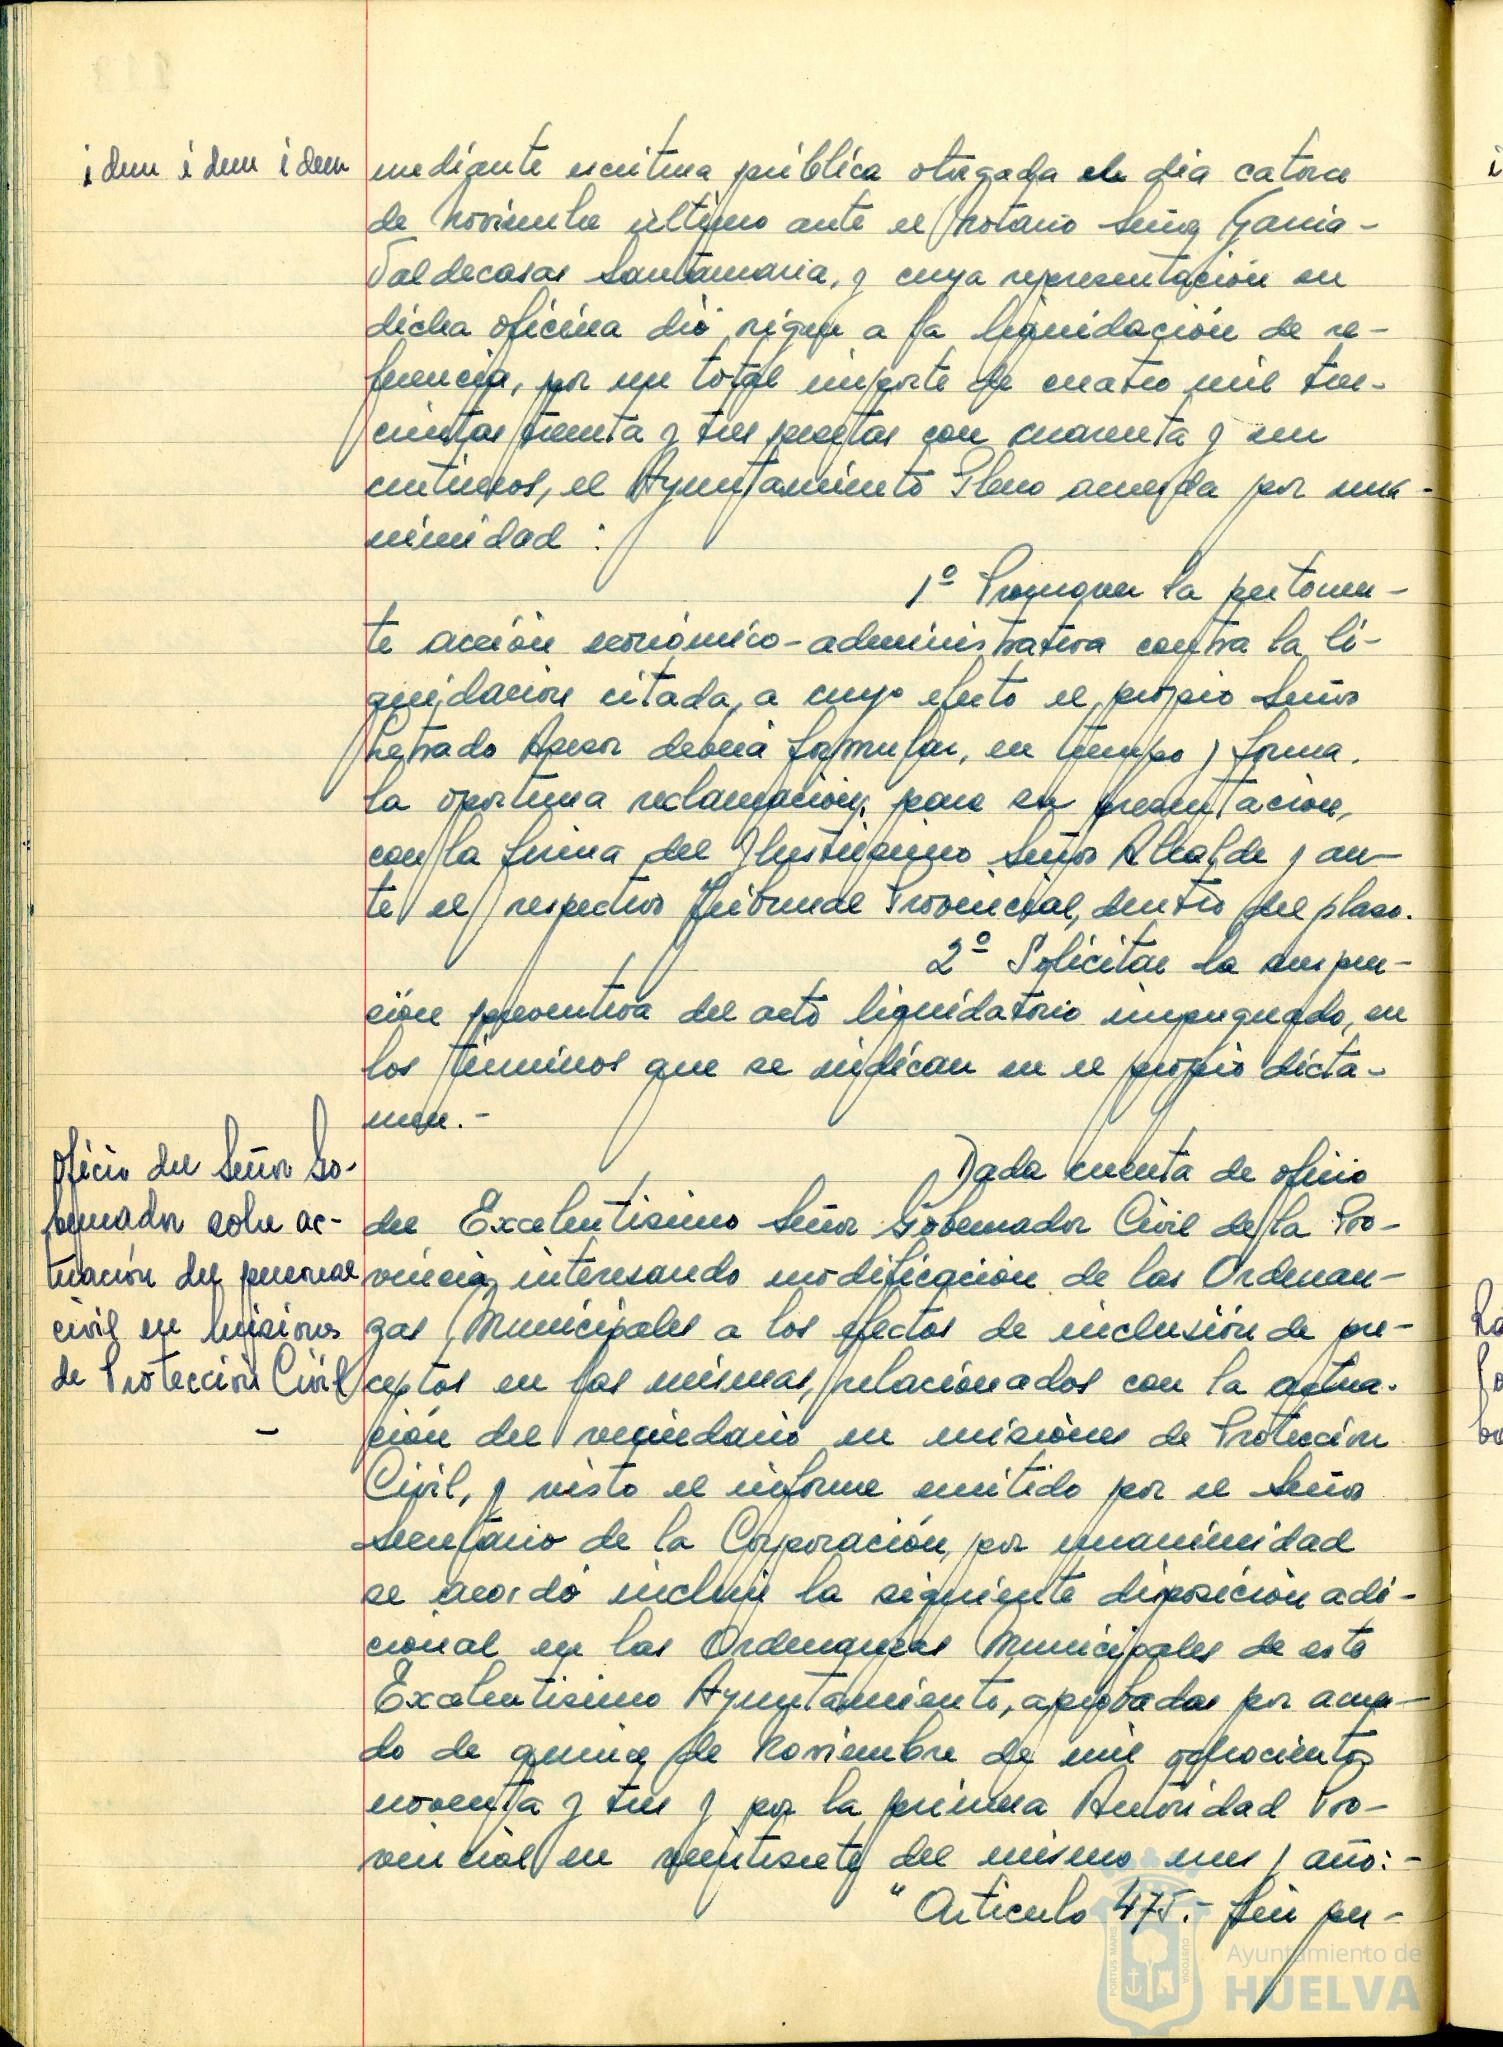 idem idem idem
mediante escritura pública otorgada el dia catorce
de Noviembre último ante el Notario Señor García-
Valdecasas Santamaria, y cuya representación en
dicha oficina dió origen a la liquidación de re-
ferencia, por un total importe de cuatro mil tres-
cientas treinta y tres pesetas con cuarenta y un
centimos, el Ayuntamiento Pleno acuerda por una-
nimidad:
1º Promover la pertinen-
te acción económico-administrativa contra la li-
quidación citada, a cuyo efecto el propio Señor
Letrado Asesor deberá formular, en tiempo y forma,
la oportuna reclamación, para su presentación,
con la firma del Ilustrisimo Señor Alcalde y an-
te el respectivo Tribunal Provincial, dentro del plazo.
2º Solicitar la suspen-
ción preventiva del acto liquidatorio impugnado, en
los términos que se indican en el propio dicta-
men.-
Oficio del Señor Go-
bernador sobre ac-
tuación del personal
civil en misiones
de Protección Civil
-
Dada cuenta de oficio
del Excelentisimo Señor Gobernador Civil de la Pro-
vincia, interesando modificación de las Ordenan-
zas Municipales a los efectos de inclusión de pre-
ceptos en las mismas, relacionados con la actua-
ción del vecindario en misiones de Protección
Civil, y visto el informe emitido por el Señor
Secretario de la Corporación, por unanimidad
se acordó incluir la siguiente disposición adi-
cional en las Ordenanzas Municipales de este
Excelentisimo Ayuntamiento, aprobadas por acuer-
do de quince de Noviembre de mil ochocientos
noventa y tres y por la primera Autoridad Pro-
vincial en veintisiete del mismo mes y año:-
"Articulo 475.- Sin per-
PORTUS MARIS
CUSTODIA
Ayuntamiento de
HUELVA